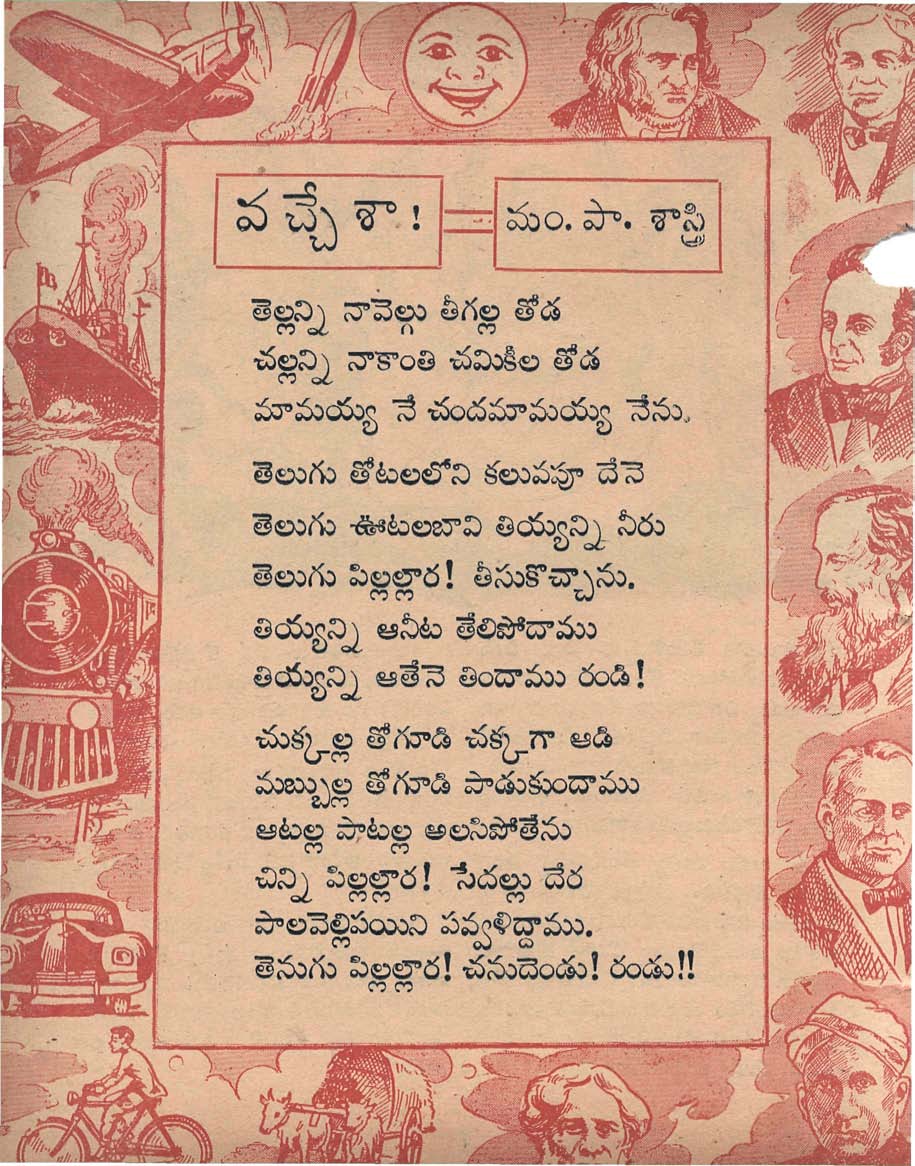 వచ్చేశా!
మం. పా. శాస్త్రి
తెల్లన్ని నావెల్గు తీగల్ల తోడ
చల్లన్ని నాకాంతి చమికీల తోడ
మామయ్య నే చందమామయ్య నేను.
తెలుగు తోటలలోని కలువపూ దేనె
తెలుగు ఊటలబావి తియ్యన్ని నీరు
తెలుగు పిల్లల్లార! తీసుకొచ్చాను.
తియ్యన్ని ఆనీట తేలిపోదాము
తియ్యన్ని ఆతేనె తిందాము రండి!
చుక్కల్ల తోగూడి చక్కగా ఆడి
మబ్బుల్ల తోగూడి పాడుకుందాము
ఆటల్ల పాటల్ల అలసిపోతేను
చిన్ని పిల్లల్లార! సేదల్లు దేర
పాలవెల్లిపయిని పవ్వళిద్దాము.
తెనుగు పిల్లల్లార! చనుదెండు! రండు!!